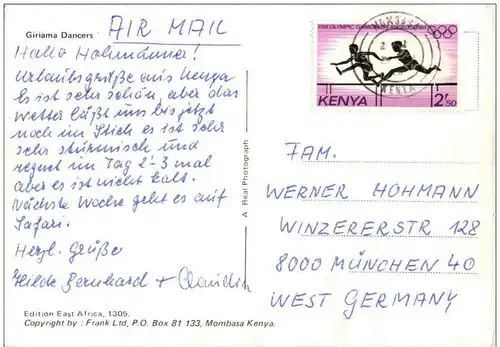 Giriama Dancers
AIR MAIL
Hallo Hohmänner!
Urlaubsgrüße aus Kenya
Es ist sehr schön, aber das
Wetter läßt uns bis jetzt
noch im Stich es ist sehr
sehr stürmisch und
regnet im Tag 2-3 mal
aber es ist nicht kalt.
Nächste Woche geht es auf
Safari.
Herzl. Grüße
Hilde Bernhard + Claudia
Edition East Africa, 1305.
Copyright by : Frank Ltd, P.O. Box 81 133, Mombasa Kenya.
A Real Photograph
OLYMPIC GAMES
MOMBASA
KENYA
KENYA 2/50
FAM.
WERNER HOHMANN
WINZERERSTR 128
8000 MÜNCHEN 40
WEST GERMANY